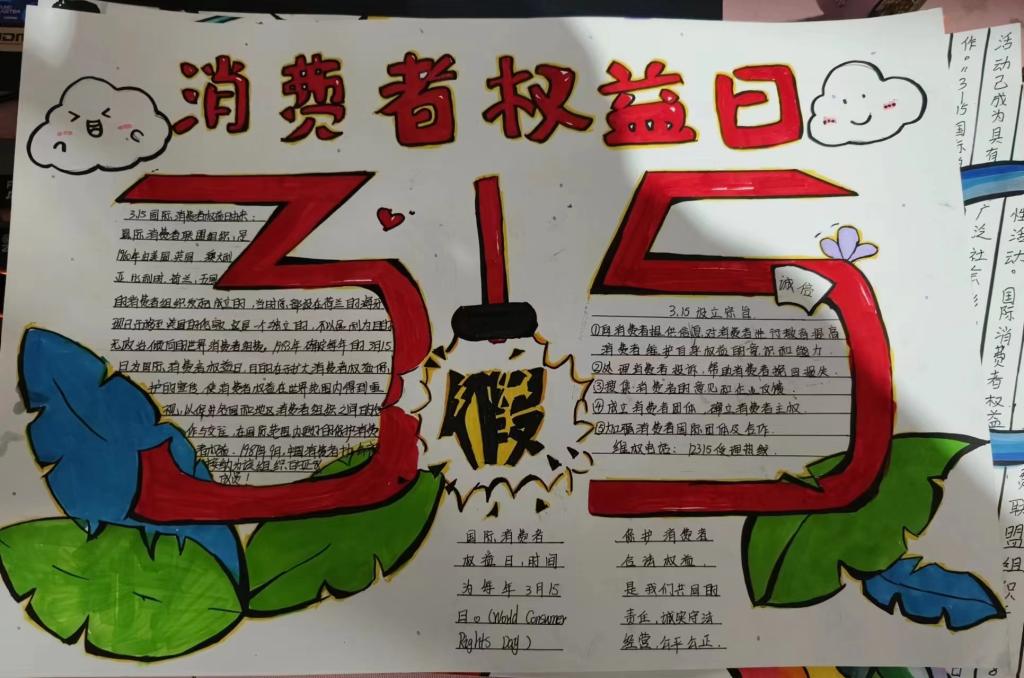 消费者权益日
3.15国际消费者权益日由来：
国际消费者联盟组织，是
1960年由美国、英国、澳大利
亚、比利时、荷兰，五国
的消费者组织发起成立的
无政治倾向的世界消费者组织。1983年确定每年的3月15
日为国际消费者权益日，目的在于扩大消费者权益保
护的宣传，使消费者权益在世界范围内得到重
视，以促进各国和地区消费者组织之间的
作与交往，在国际范围内
成员！
假
诚信
3.15设立宗旨
①向消费者提供信息，对消费者进行教育，提高
消费者维护自身权益的意识和能力.
②处理消费者投诉，帮助消费者挽回损失.
③搜集消费者的意见和企业反馈.
④成立消费者团体，确立消费者主权.
⑤加强消费者国际团体及合作.
维权电话：12315受理热线.
315
国际消费者
权益日，时间
为每年3月15
日。(World Consumer
Rights Day)
保护消费者
合法权益.
是我们共同的
责任，诚实守法
经营，公平公正.
活动已成为具有
作。"3·15国际
性活动。国际消费者权益
广泛社会影
联盟组织